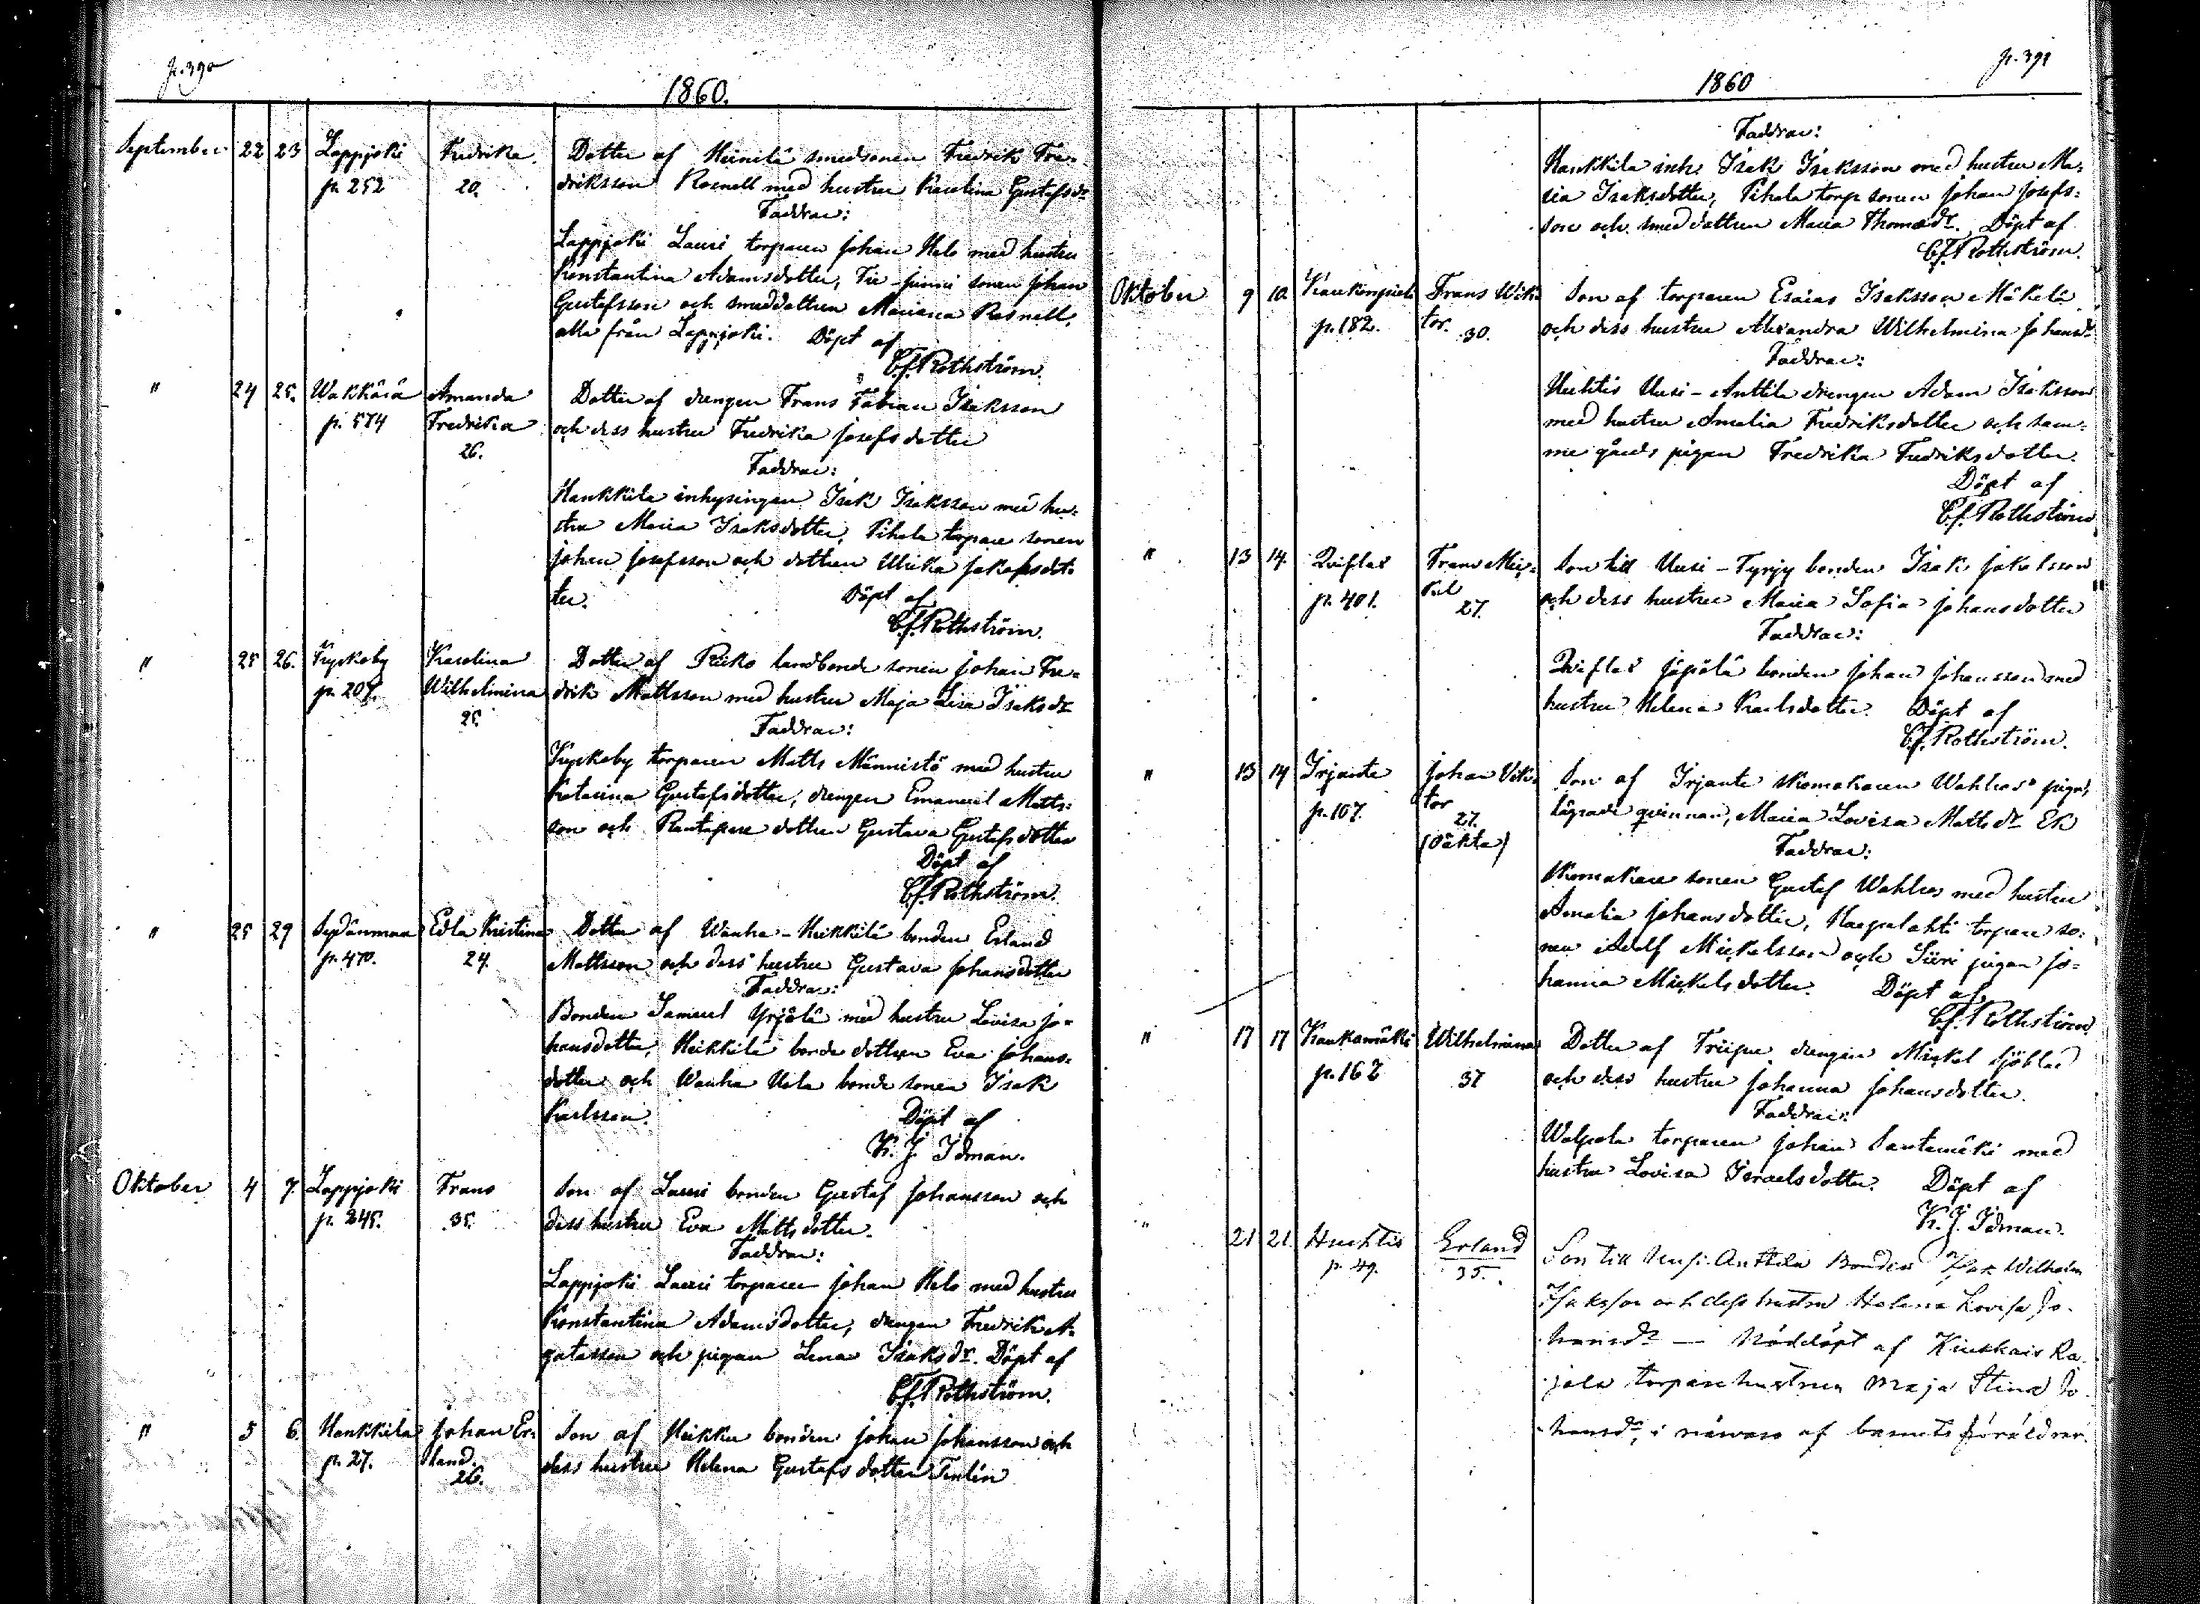 p. 390
1860.
September 22 23 Lappjoki Fredrika. Dotter af Heinilä smedsonen Fredrik Fre-
p. 252 20. driksson Rosnell med hustru Karolina Gustafsdr
Faddrar:
Lappjoki Lauri torparen Johan Helo med hustru
Konstantina Adamsdotter, sonen Johan
Gustafsson och smeddottren Mariana Rosnell,
alla från Lappjoki. Döpt af
C.J. Rothström.
" 24 25. Wakkärä Amanda Dotter af drengen Frans Fabian Isaksson
p. 574 Fredrika och dess hustru Fredrika Josefsdotter
26. Faddrar:
Hankkila inhysingen Isak Isaksson med hu-
stru Maria Isaksdotter, Pihala torpare sonen
Johan Josefsson och dottren Ulrika Jakobsdot-
ter. Döpt af
C.J. Rothström.
" 25 26. Kyrkoby Karolina Dotter af landbonde sonen Johan Fre-
p. 207. Wilhelmina drik Mattsson med hustru Maja Lisa Isaksdr
25. Faddrar:
Kyrkoby torparen Matts Männistö med hustru
Katarina Gustafsdotter, drengen Emanuel Matts-
son och dottren Gustava Gustafsdotter
Döpt af
C.J. Rothström.
" 25 29 Sydänmaa Edla Kristina Dotter af Wanha-Heikkilä bonden Erland
p. 470. 24. Mattsson och dess hustru Gustava Johansdotter
Faddrar:
Bonden Samuel Yrjölä med hustru Lovisa Jo-
hansdotter, Heikkilä bonde dottren Eva Johans-
dotter och Wanha Uola bonde sonen Isak
Karlsson. Döpt af
K. J. Idman.
Oktober 4 7. Lappjoki Frans Son af Lauri bonden Gustaf Johansson och
p. 245. 35. dess hustru Eva Mattsdotter.
Faddrar:
Lappjoki Lauri torparen Johan Helo med hustru
Konstantina Adamsdotter, drengen Fredrik A-
gatasson och pigan Lena Isaksdr. Döpt af
C.J. Rothström.
" 5 6. Hankkila Johan Er- Son af Heikku bonden Johan Johansson och
p. 27. land. dess hustru Helena Gustafsdotter
26.
p. 391
1860
Faddrar:
Hankkila inh. Isak Isaksson med hustru Ma-
ria Isaksdotter, Pihala torp. sonen Johan Josefs-
son och smeddottren Maria Thomasdr. Döpt af
C.J. Rothström.
Oktober 9 10. Frans Wik- Son af torparen Esaias Isaksson Mäkelä
p. 182. tor. 30. och dess hustru Alexandra Wilhelmina Johansdr
Faddrar:
Huhtis Uusi-Anttila drengen Adam Isaksson
med hustru Amalia Fredriksdotter och sam-
ma gårds pigan Fredrika Fredriksdotter.
Döpt af
C.J. Rothström
" 13 14. Qviflax Frans Mic- Son till Uusi-Tyrjy bonden Isak Jakobsson
p. 401. kel 27. och dess hustru Maria Sofia Johansdotter
Faddrar:
Qviflax Jäpölä bonden Johan Johansson med
hustru Helena Karlsdotter. Döpt af
C.J. Rothström.
" 13 14 Irjante Johan Vik- Son af Irjante skomakaren Wahlros' piga,
p. 107. tor 27. lägrade qvinnan, Maria Lovisa Mattsdr Ek
(oäkta) Faddrar:
Skomakare sonen Gustaf Wahlros med hustru
Amalia Johansdotter, Haapalahti torpare so-
nen Adolf Mickelsson och Siiri pigan Jo-
hanna Mickelsdotter. Döpt af
C.J. Rothström.
" 17 17 Kaukomäki Wilhelmina Dotter af drengen Mickel Sjöblad
p. 162 37 och dess hustru Johanna Johansdotter.
Faddrar:
Walpola torparen Johan Santamäki med
hustru Lovisa Israelsdotter. Döpt af
K. J. Idman.
" 21 21. Huhtis Erland Son till Uusi-Anttila Bonden Isak Wilhelm
p. 49. 35. Isaksson och dess hustru Helena Lovisa Jo-
hansdr — Nöddöpt af Kiukais Ra-
jala torparehustrun Maja Stina Jo-
hansdr, i närvaro af barnets föräldrar.